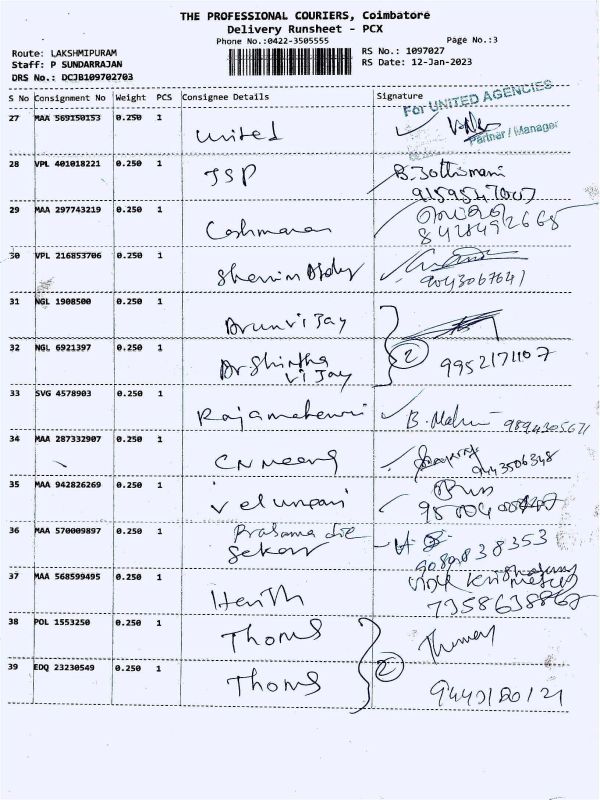 THE PROFESSIONAL COURIERS, Coimbatore
Delivery Runsheet - PCX
Phone No.:0422-3505555
Page No.:3
Route: LAKSHMIPURAM
RS No.: 1097027
Staff: P SUNDARRAJAN
RS Date: 12-Jan-2023
DRS No.: DCJB109702703
S No Consignment No Weight PCS Consignee Details Signature
For UNITED AGENCIES
27 MAA 569150153 0.250 1 United
Partner / Manager
28 VPL 401018221 0.250 1 JSP B. Jothimani
9159547007
29 MAA 297743219 0.250 1
8428492668
30 VPL 216853706 0.250 1
9043067641
31 NGL 1908500 0.250 1 Arunvijay
32 NGL 6921397 0.250 1 Dr Shintha 2
Vijay 9952171107
33 SVG 4578903 0.250 1 Rajamaheswri B. 9894305671
34 MAA 287332907 0.250 1 CN Meena
9443506348
35 MAA 942826269 0.250 1 Velumani
36 MAA 570009897 0.250 1
Sekar
37 MAA 568599495 0.250 1
7358638867
38 POL 1553250 0.250 1 Thoms
39 EDQ 23230549 0.250 1 Thoms 2